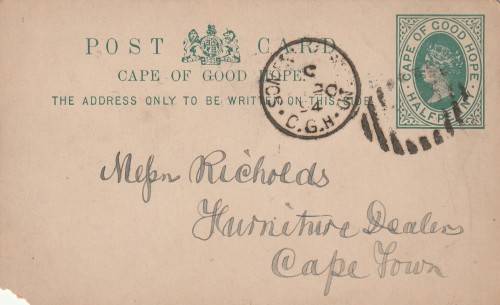 POST CARD
CAPE OF GOOD HOPE.
THE ADDRESS ONLY TO BE WRITTEN ON THIS SIDE.
CAPE OF GOOD HOPE
HALFPENNY
C
20
94
C.G.H.
Messrs Richolds
Furniture Dealers
Cape Town